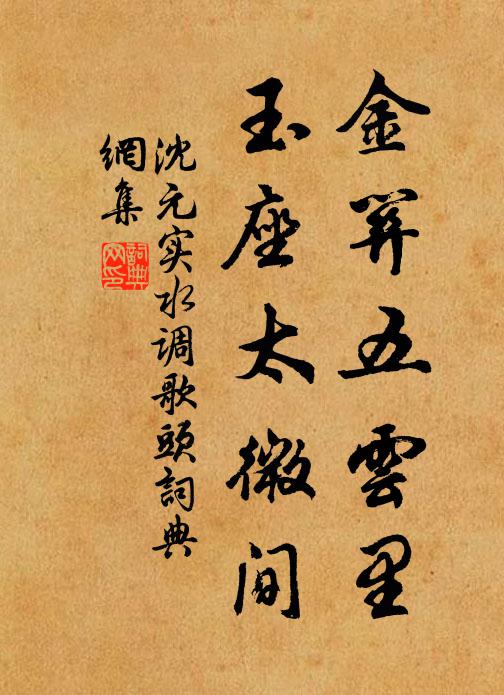 金五雲里
玉座太微间
沈元实水调歌頭詞典
網集
詞典网印